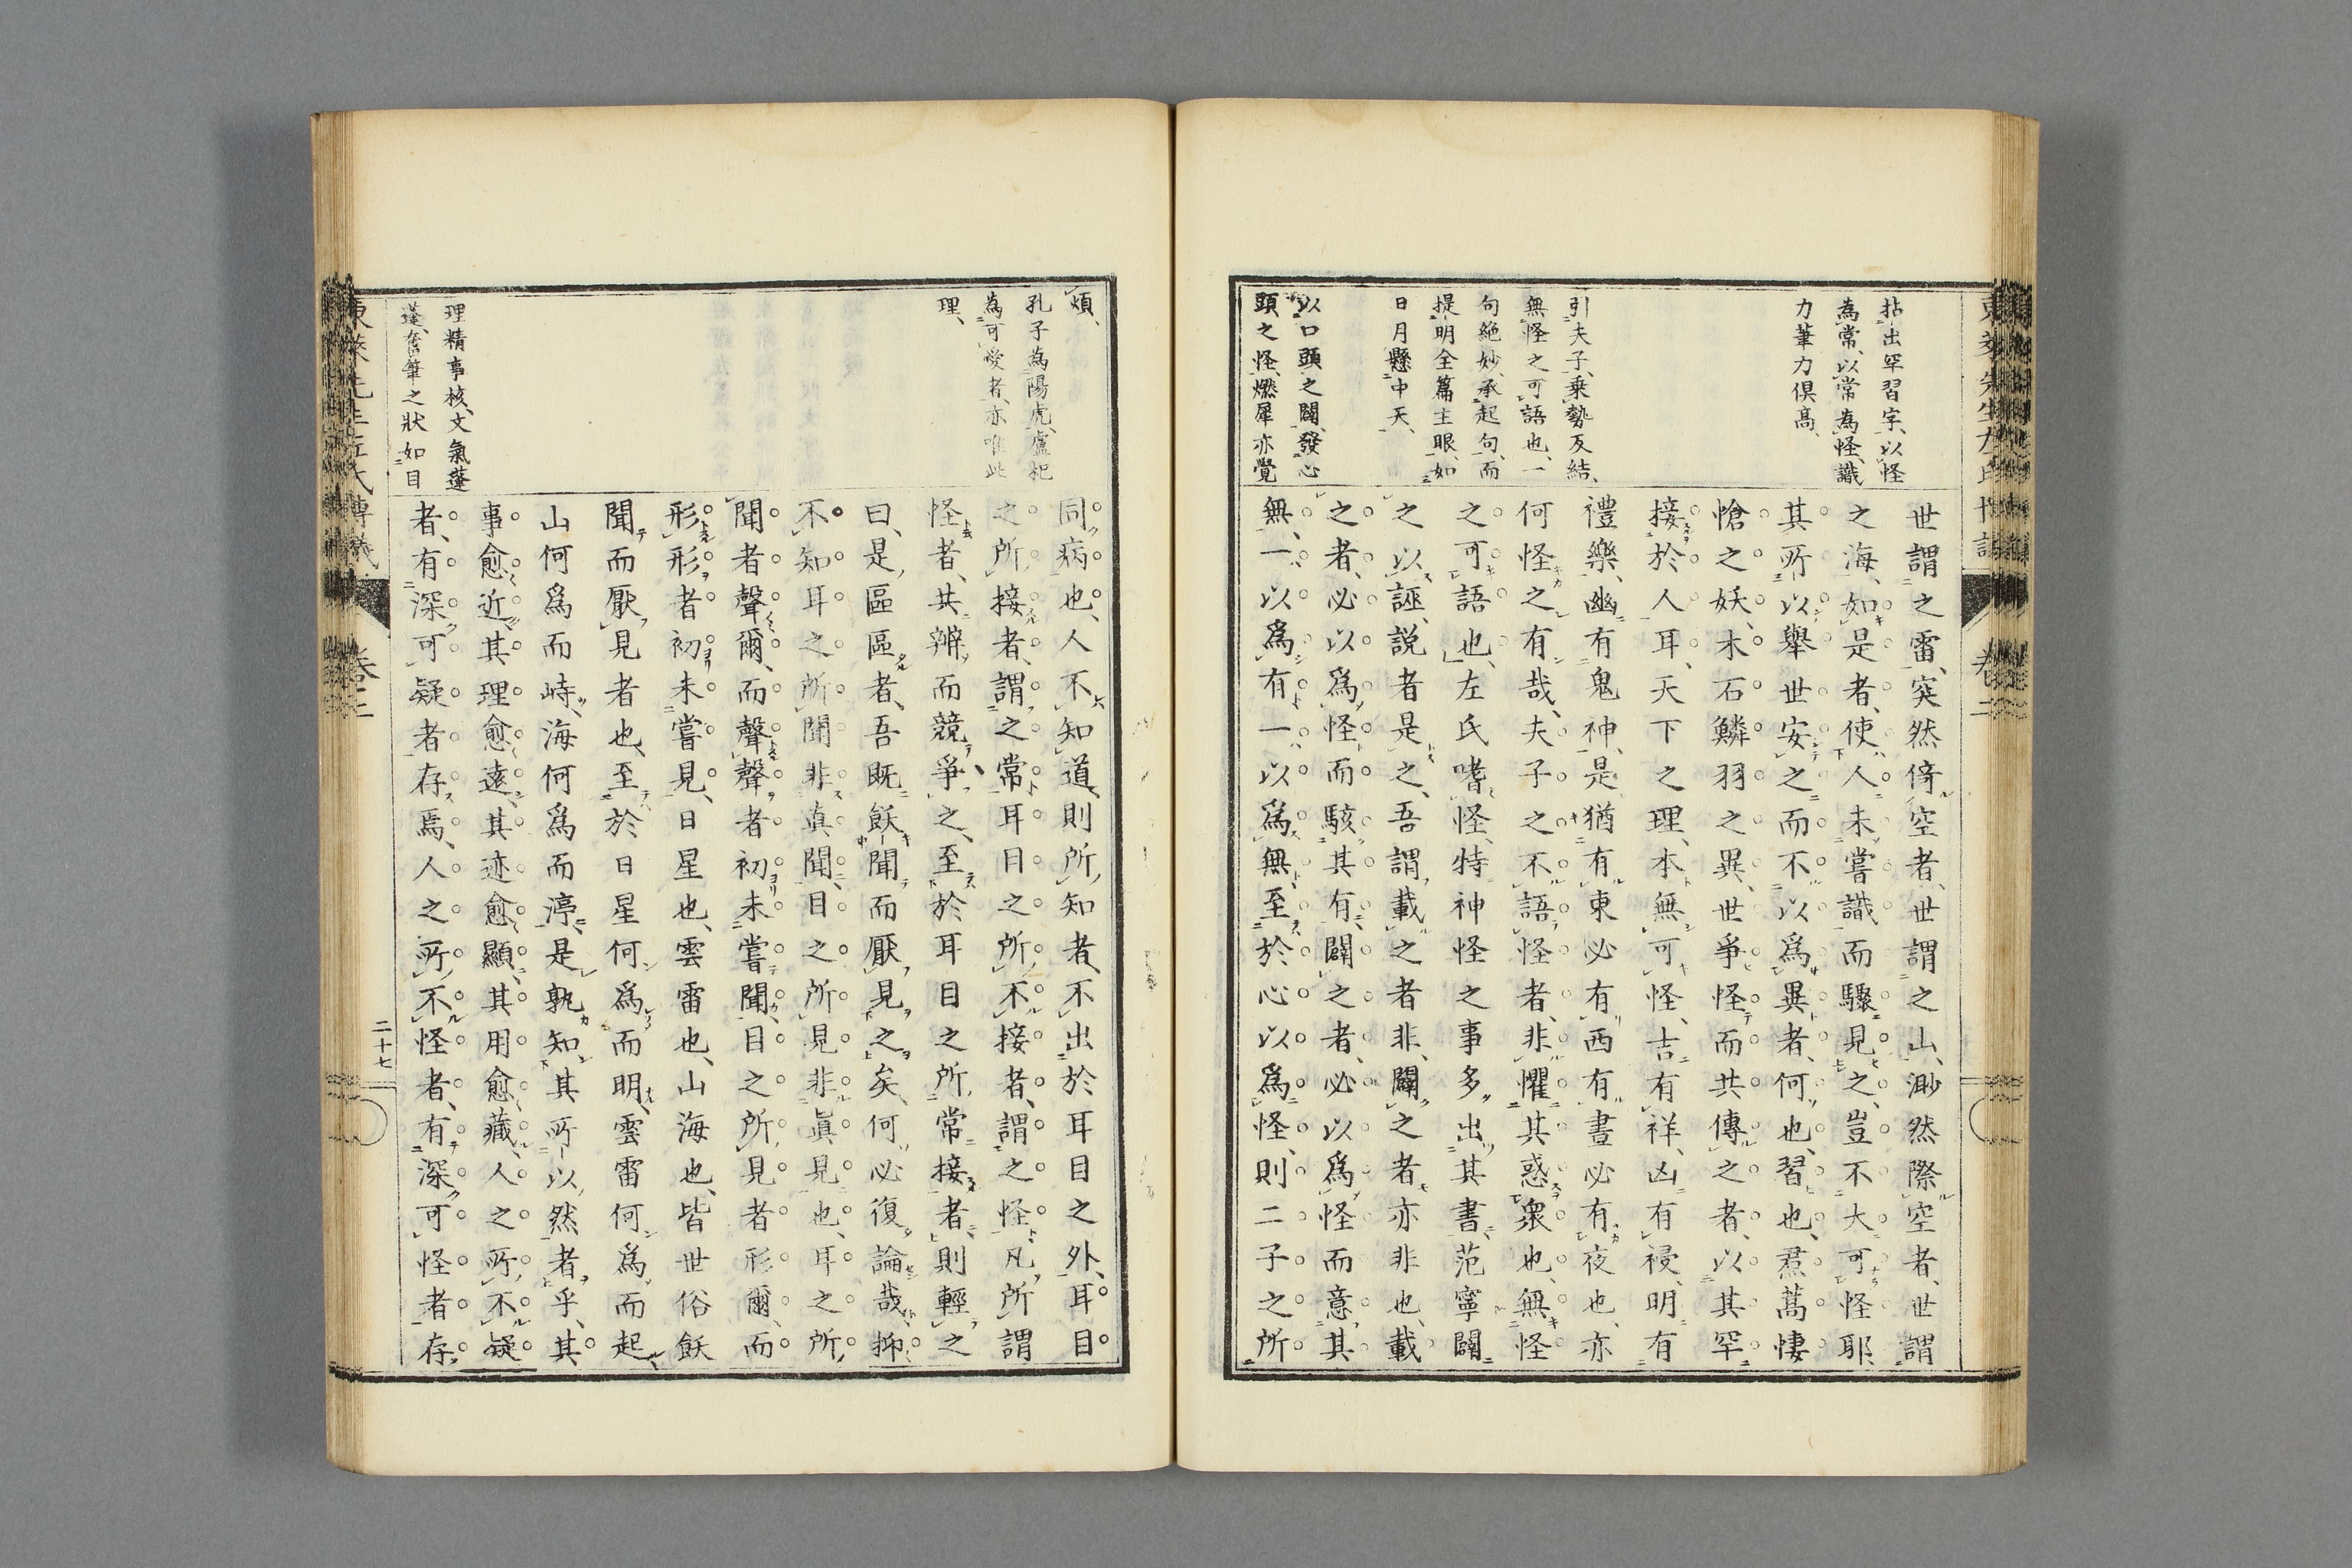 拈出罕習字、以怪
為常、以常為怪、識
力筆力倶高、
引夫子、乗勢反結、
無怪之可語也、一
句絶妙、承起句、而
提明全篇主眼、如
日月懸中天、
以口頭之闢、發心
頭之怪、燃犀亦覺
世謂之雷、突然倚空者、世謂之山、渺然際空者、世謂
之海、如是者、使人未嘗識而驟見之、豈不大可怪耶、
其所以舉世安之而不以爲異者、何也、習也、焄蒿悽
愴之妖、木石鱗羽之異、世爭怪而共傳之者、以其罕
接於人耳、天下之理、本無可怪、吉有祥、凶有祲、明有
禮樂、幽有鬼神、是猶有東必有西有晝必有夜也、亦
何怪之有哉、夫子之不語怪者、非懼其惑衆也、無怪
之可語也、左氏嗜怪、特神怪之事多出其書、范寧闢
之以誣、説者是之、吾謂載之者非、闢之者亦非也、載
之者、必以爲怪而駭其有、闢之者、必以爲怪而意其
無、一以爲有、一以爲無、至於心以爲怪、則二子之所
卷二
煩、
孔子為陽虎、盧杞
為可愛者、亦唯此
理、
理精事核、文氣蓬
蓬、奮筆之狀如目
同病也、人不知道、則所知者、不出於耳目之外、耳目
之所接者、謂之常耳目之所不接者、謂之怪、凡所謂
怪者、共辨而競爭之、至於耳目之所常接者、則輕之
曰、是區區者、吾既飫聞而厭見之矣、何必復論哉、抑
不知耳之所聞非眞聞、目之所見非眞見也、耳之所
聞者聲爾、而聲聲者初未嘗聞、目之所見者形爾、而
形形者初未嘗見、日星也、雲雷也、山海也、皆世俗飫
聞而厭見者也、至於日星何爲而明、雲雷何爲而起、
山何爲而峙、海何爲而渟、是孰知其所以然者乎、其
事愈近、其理愈遠、其迹愈顯、其用愈藏、人之所不疑
者、有深可疑者存焉、人之所不怪者、有深可怪者存、
東萊先生左氏博議
卷二
二十七